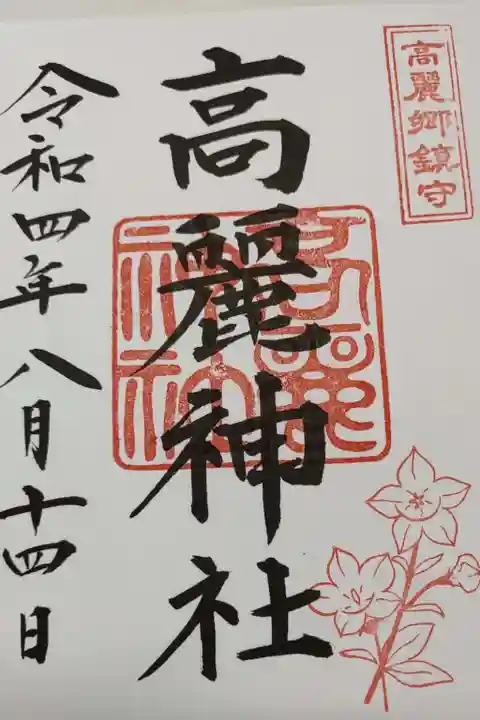 高麗郷鎮守
高麗神社
令和四年八月十四日